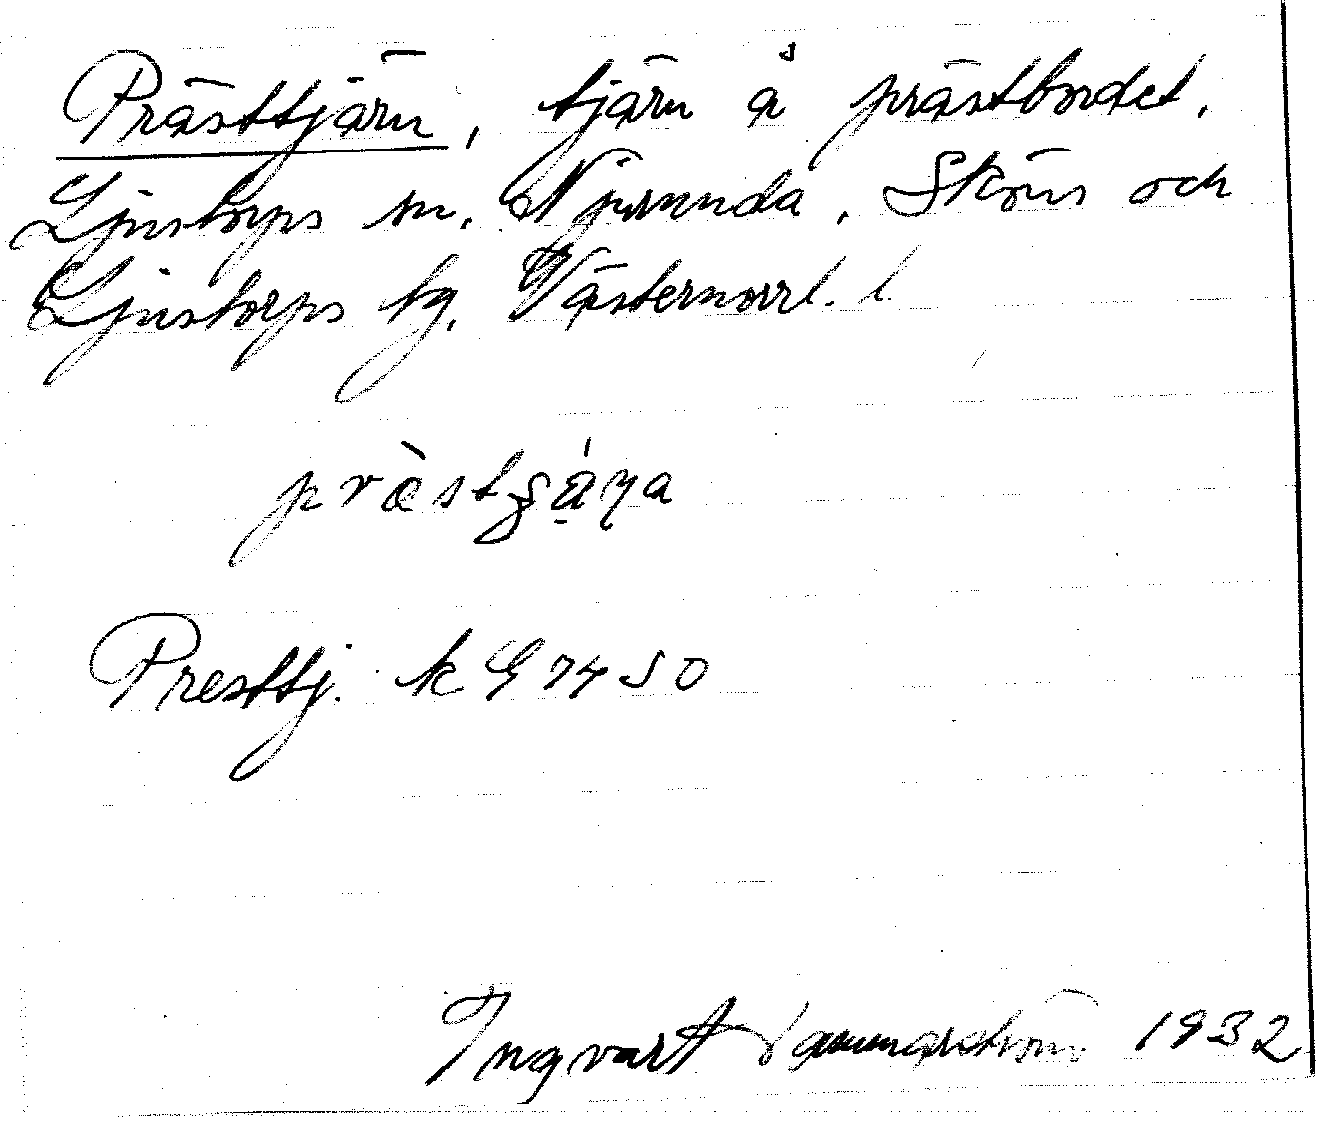 Prästtjärn, tjärn å prästbordet.
Ljustorps sn, Njurunda, Sköns och
Ljustorps tg, Västernorrl. l.
Presttj. k G 74 50
Ingvart Hammarström 1932